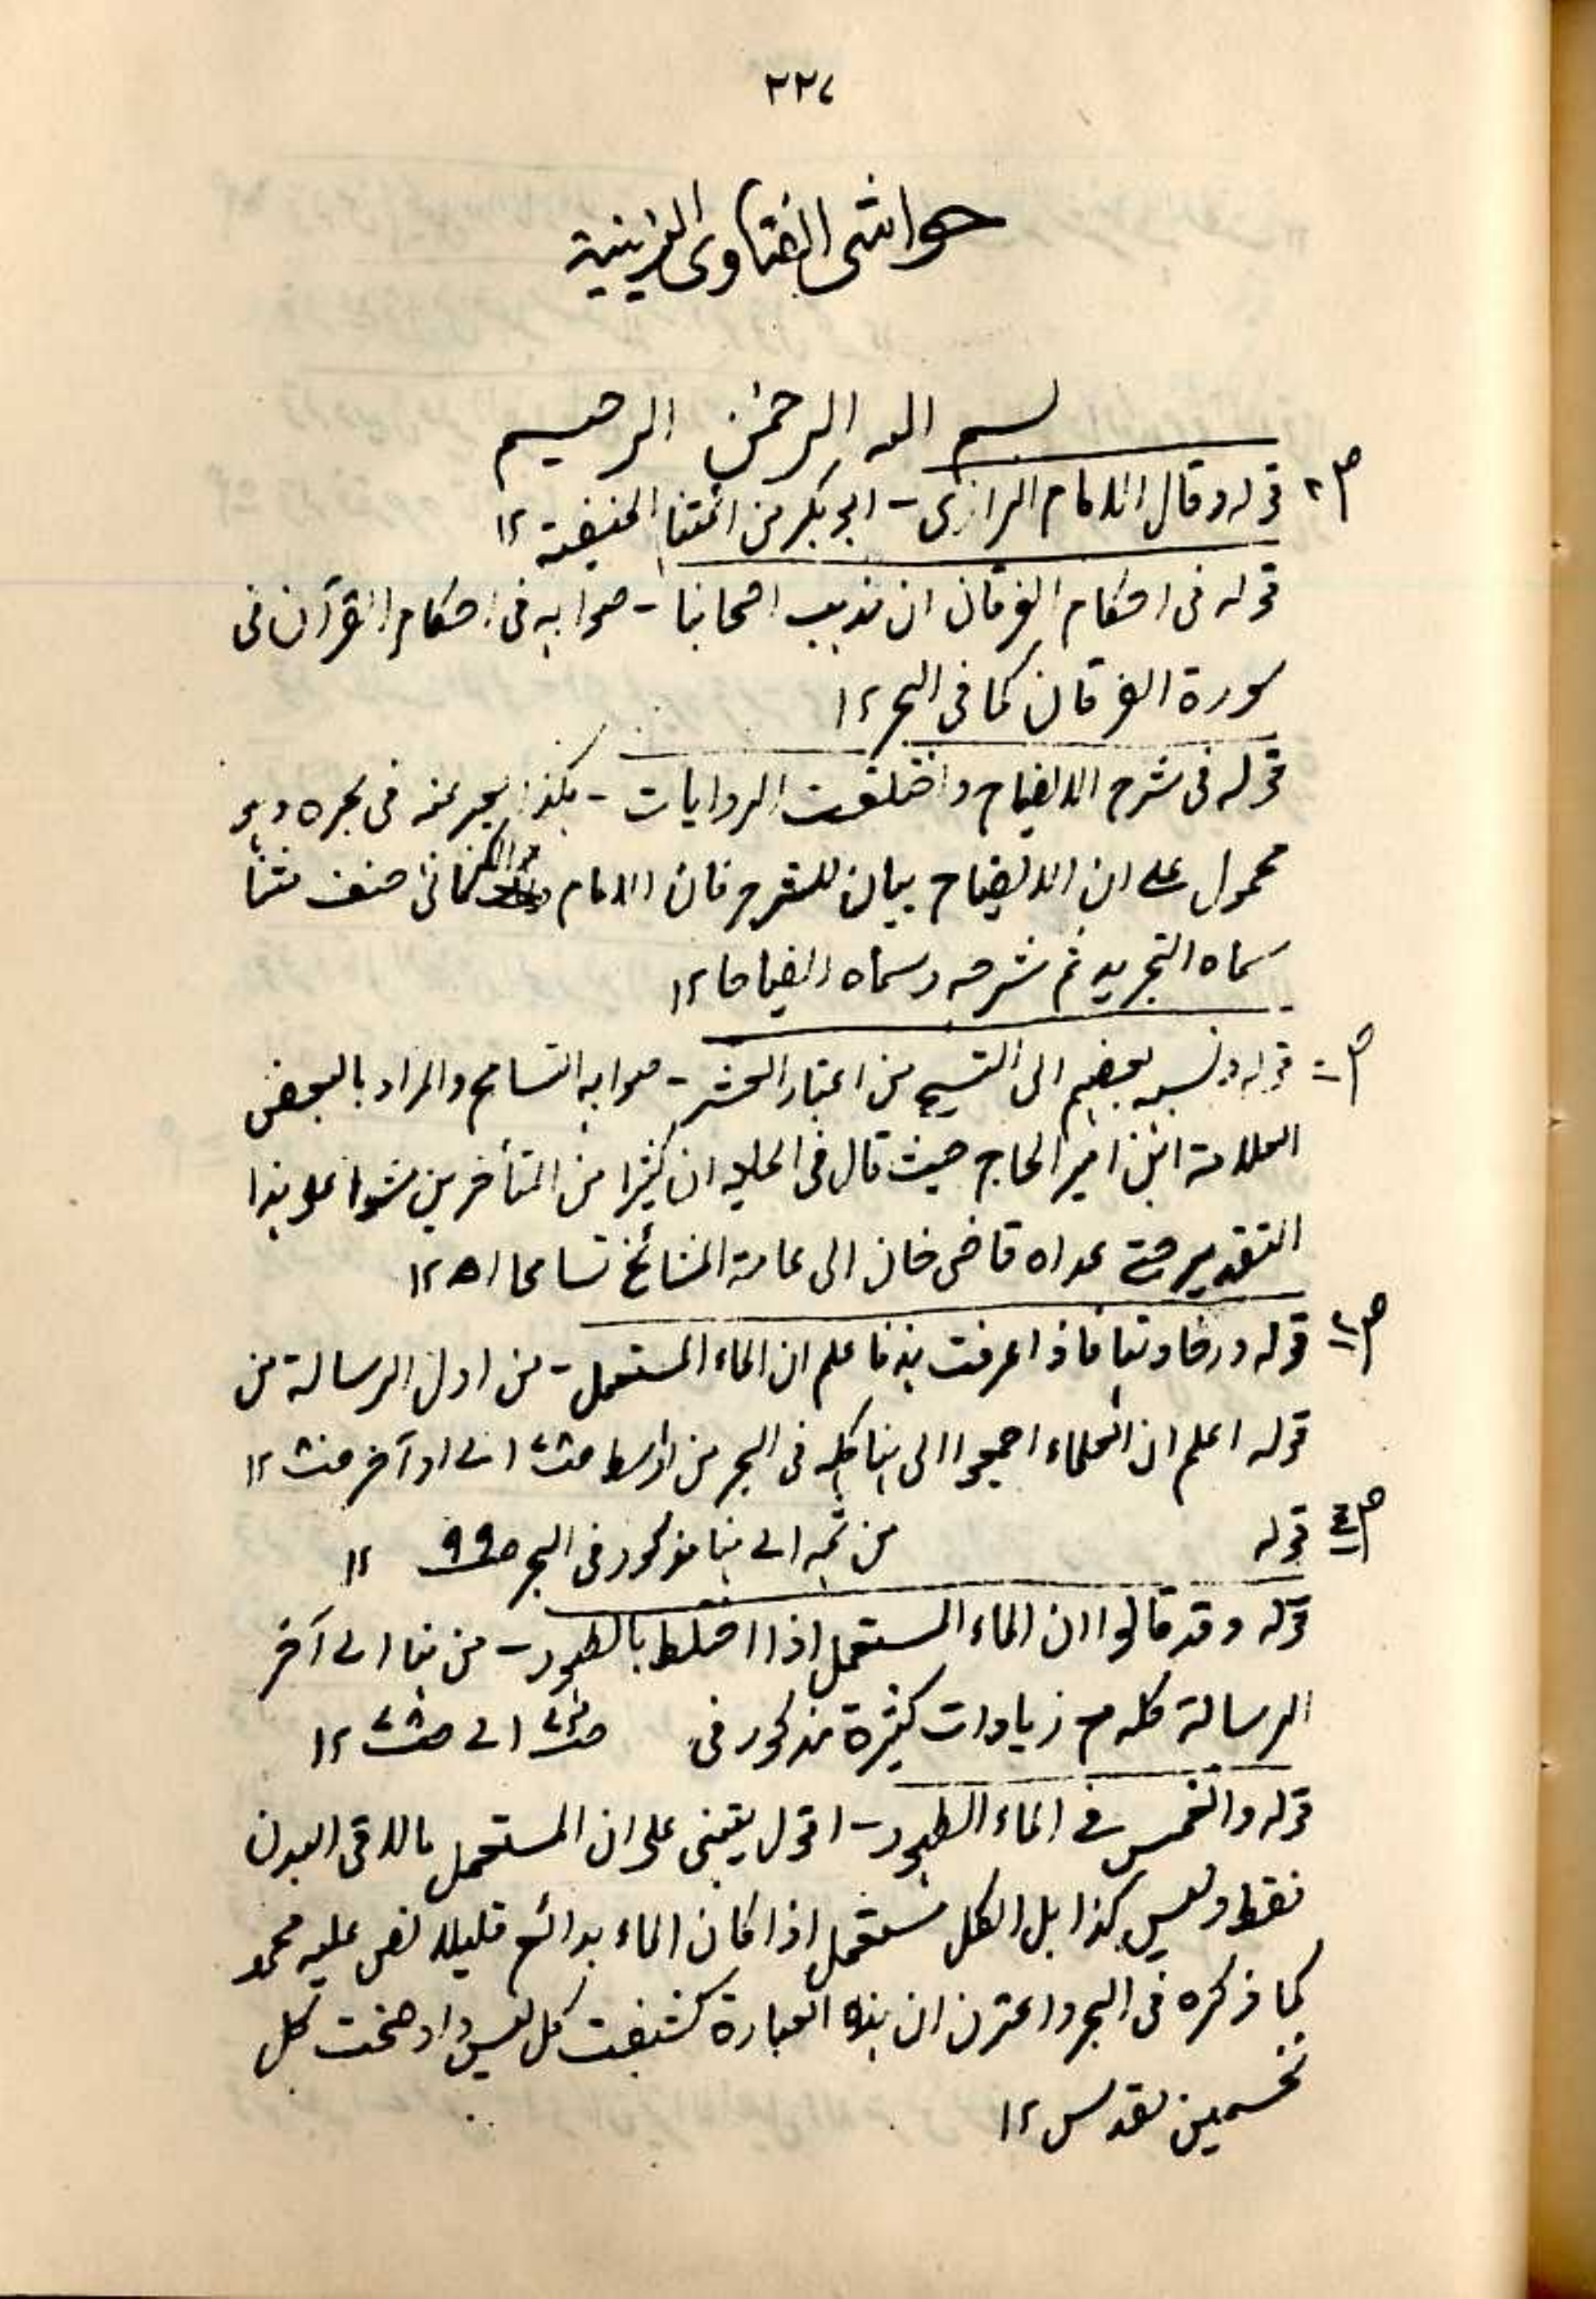 ۲۲۷
حواشی الفتاوی الزینیة
بسم الله الرحمن الرحیم
ص۲ قوله وقال الامام الرازی - ابو بکر من ائمتنا الحنفیة ۱۲
قوله فی احکام الفرقان ان مذہب اصحابنا - صوابه فی احکام القرآن فی
سورة الفرقان کما فی البحر ۱۲
قوله فی شرح الایضاح واختلفت الروایات - ہکذا یعبر عنه فی بحره وہو
محمول علی ان الایضاح بیان للشرح فان الامام الکرمانی صنف متنا
سماه التجرید ثم شرحه وسماه ایضاحا ۱۲
قوله ونسبه بعضہم الی التسبیح من اعتبار العشر - صوابه التسامح والمراد بالبعض
العلامة ابن امیر الحاج حیث قال فی الحلیه ان کثیرا من المتأخرین مشوا علی ہذا
التقدیر حتی عداه قاضی خان الی عامة المشائخ تسامحا اھ ۱۲
قوله فاذا عرفت ہذا فاعلم ان الماء المستعمل - من اول الرسالة من
قوله اعلم ان العلماء اجمعوا الی ہنا کله فی البحر من اواسط الی اواخر ۱۲
قوله من ثمه الی ہنا مذکور فی البحر ص۹۹ ۱۲
قوله وقد قالوا ان الماء المستعمل اذا اختلط بالطہور - من ہنا الی آخر
الرسالة کله مع زیادات کثیرة مذکور فی الی ۱۲
قوله والغمس فی الماء الطہور - اقول یبتنی علی ان المستعمل ما لاقی البدن
فقط ولیس کذا بل الکل مستعمل اذا کان الماء قلیلا نص علیه محمد
کما ذکره فی البحر واعترف ان ہذه العبارة کشفت کل لبس واوضحت کل
تخمین وحدس ۱۲